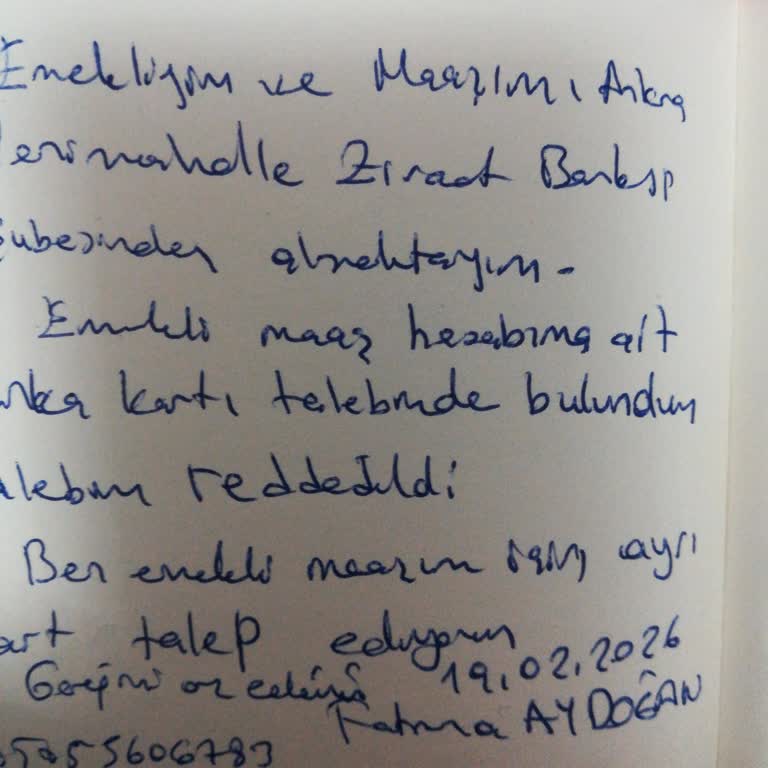 Emekliyim ve Maaşımı Ankara
enimahalle Ziraat Bankası
Şubesinden almaktayım.
Emekli maaş hesabıma ait
anka kartı talebinde bulundum
alebim reddedildi
Ben emekli maaşım için ayrı
art talep ediyorum
Gereğini arz ederim 19.02.2026
Fatma AYDOĞAN